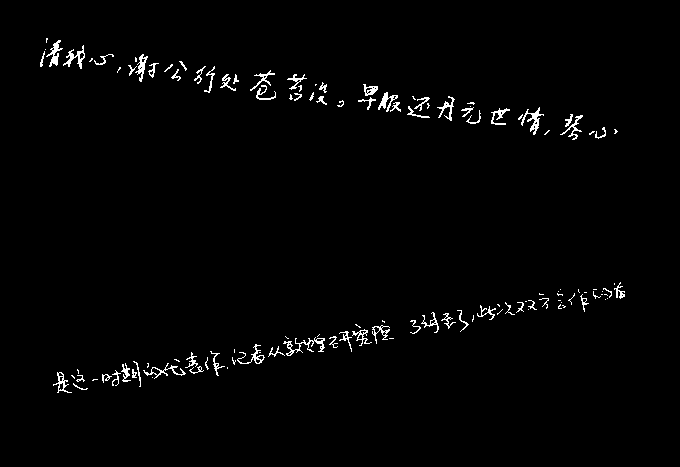 清我心,谢公行处苍苔没。早服还丹无世情,琴心
是这一时期的代表作,记者从敦煌研究院了解到,此次双方合作的首